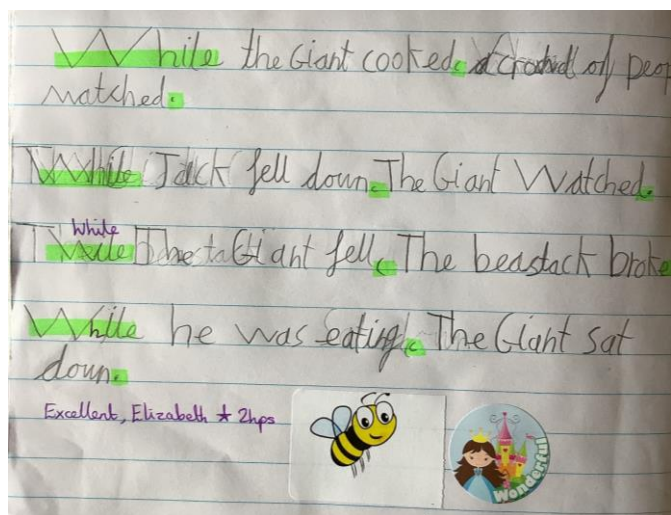 While the Giant cooked, a crowd of peop
watched.
While Jack fell down, The Giant Watched.
While
While The Giant fell, The beastack broke
While he was eating, The Giant sat
down.
Excellent, Elizabeth ★ 2hps
Wonderful